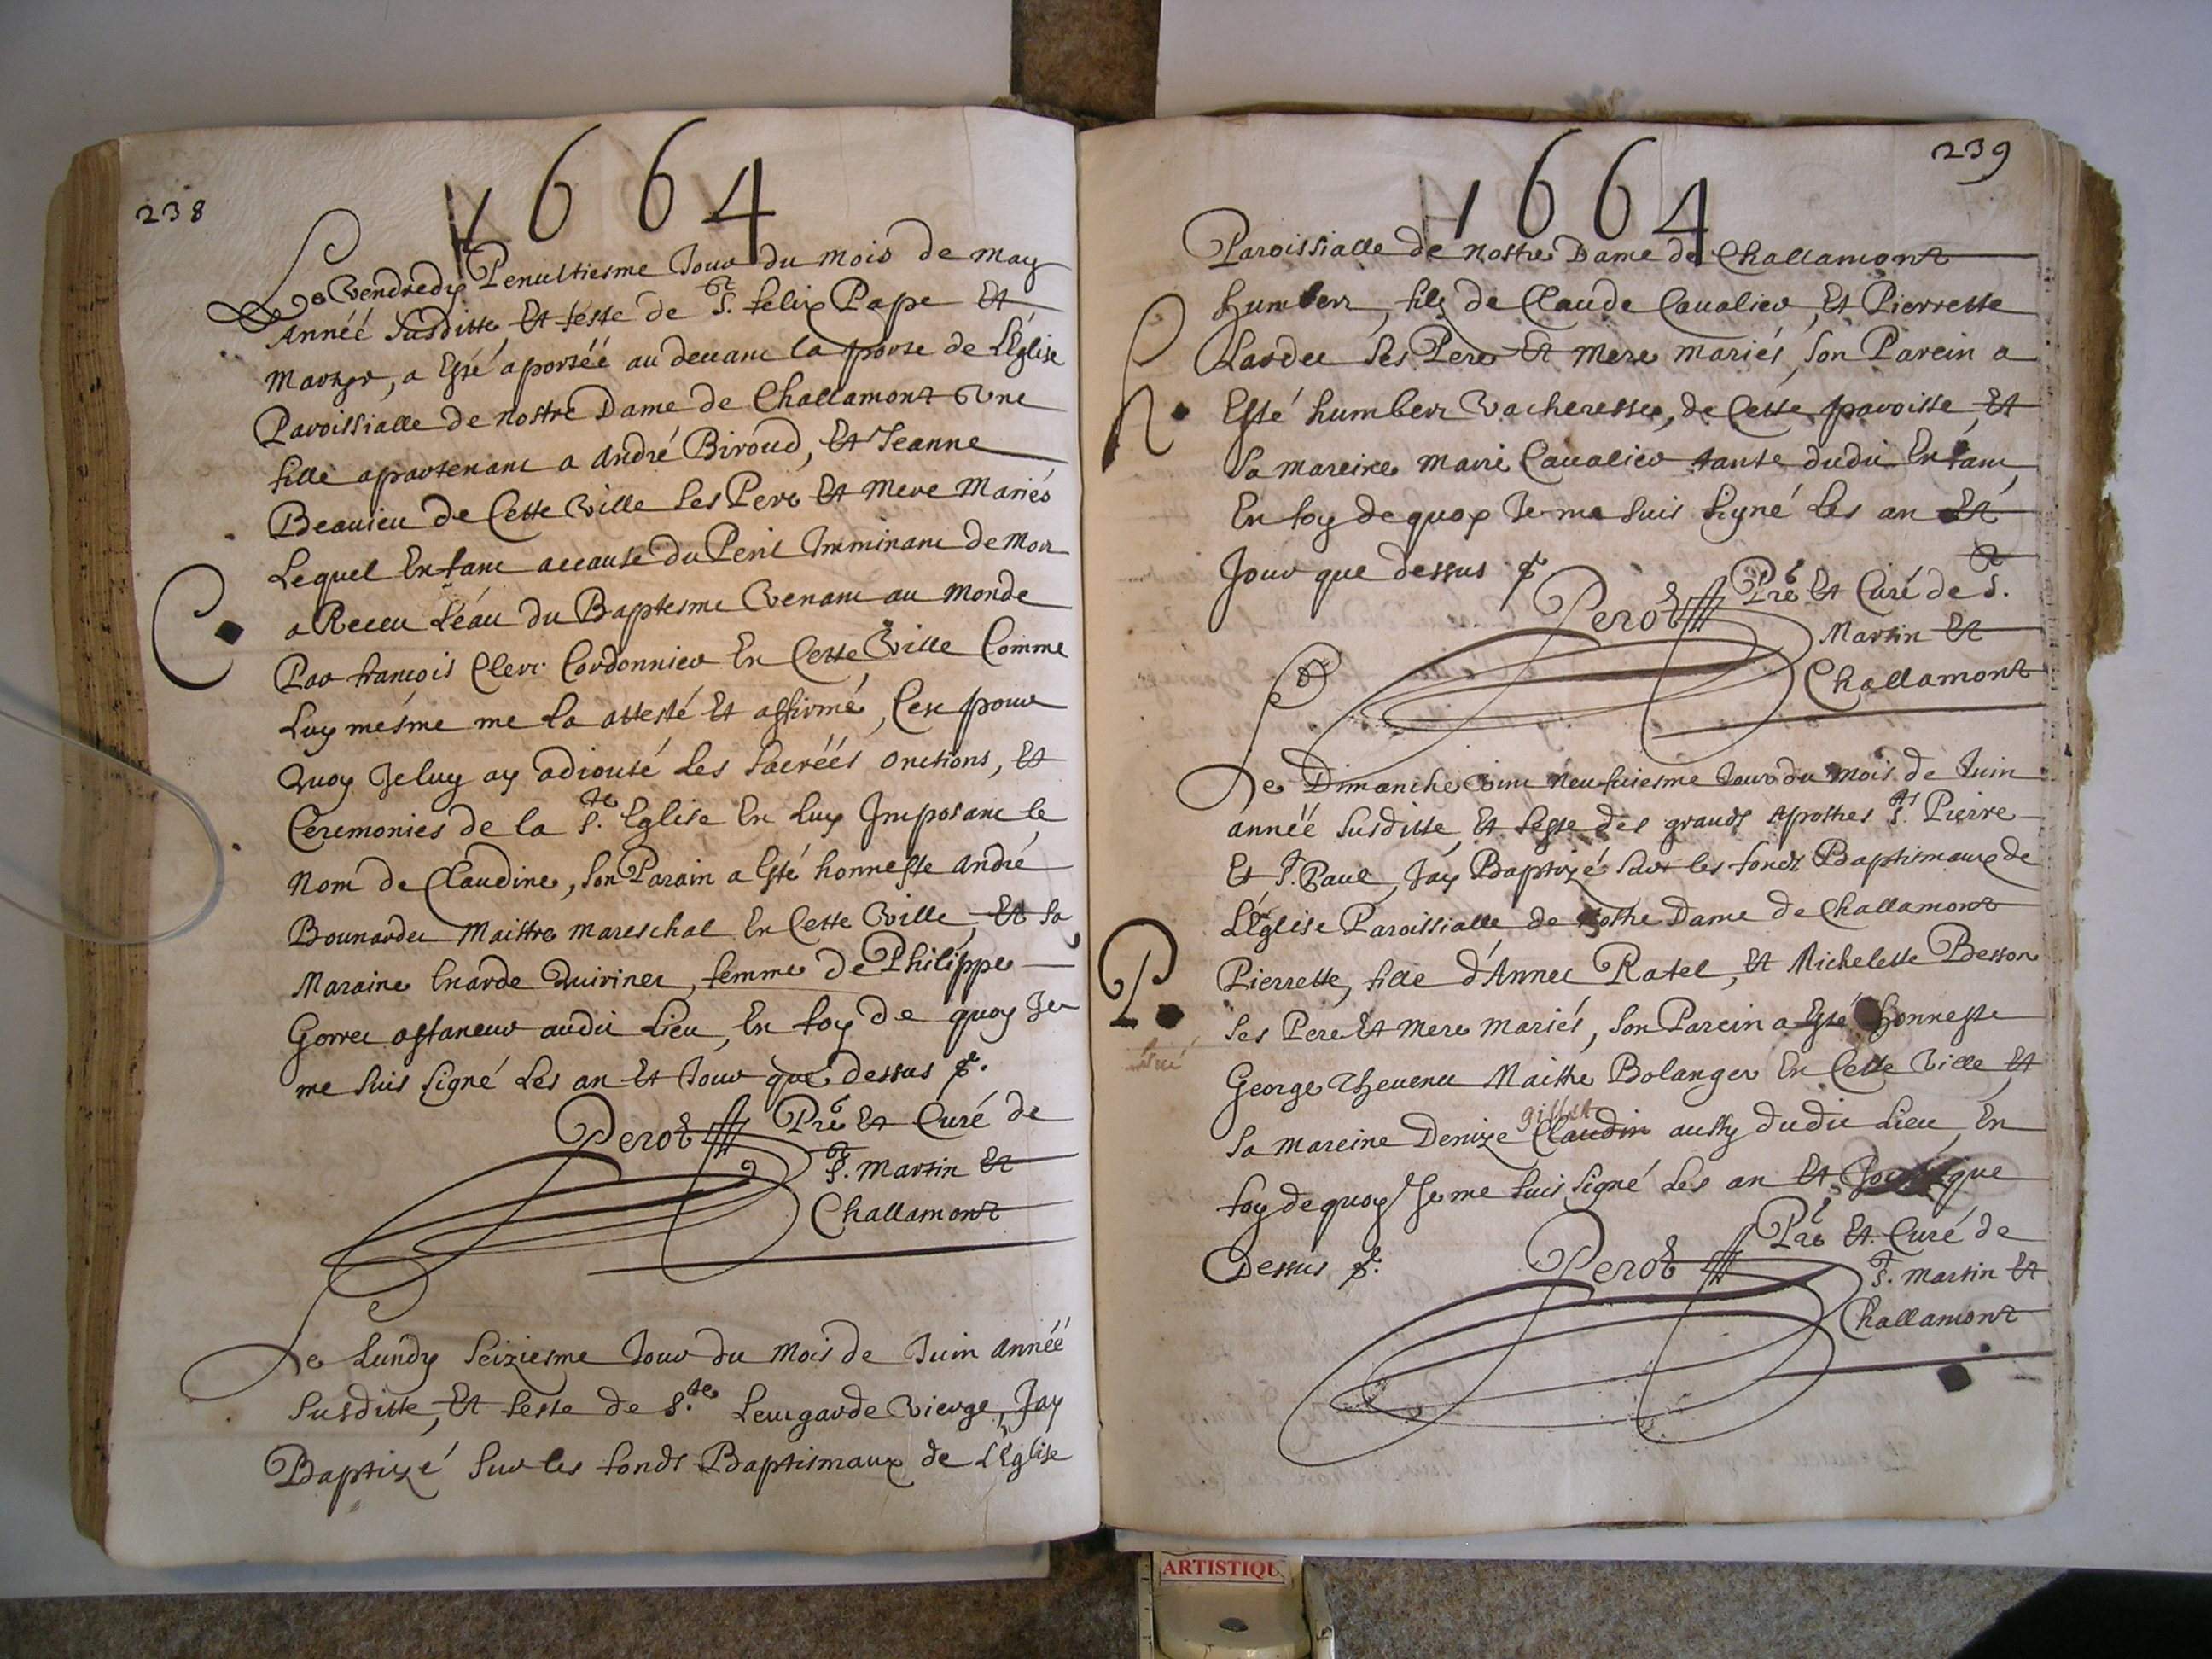 238
1664
Le Vendredy Penultiesme Jour du mois de may
Année susditte, Et feste de St. felix Pape Et
Martyr, a esté aportéé au devant la porte de L'Église
Paroissialle de nostre Dame de Challamont Une
fille apartenant a André Biroud, Et Jeanne
Beaulieu de Cette Ville ses Pere Et Mere Mariés
Lequel Enfant acause du Peril Imminant de Mort
a Receu L'éau du Baptesme Venant au Monde
Par françois Clerc Cordonnier En Cette Ville Comme
Luy mésme me la attesté Et affirmé, Cest pour
Quoy Je luy ay adiousté Les sacréés onctions, Et
Ceremonies de la Ste. Eglise En Luy Imposant le
Nom de Claudine, son Parain a Esté honneste André
Bounardet Maistre mareschal En Cette Ville, Et sa
Maraine Enarde Quirinet, femme de Philippe
Gorret affaneur audit Lieu, En foy de quoy Je
me suis signé Les an Et Jour que dessus
C.
Perot Pre Et Curé de
St. Martin Et
Challamont
Le Lundy seiziesme Jour du Mois de Juin Année
susditte, Et feste de Ste. Leutgarde Vierge, Jay
Baptizé sur les fonds Baptismaux de L'Église
239
1664
Paroissialle de nostre Dame de Challamont
humbert, fils de Claude Cavalier, Et Pierrette
Lardet ses Pere Et Mere mariés, son Parein a
Esté humbert Vacheresse, de Cette paroisse, Et
sa mareine marie Cavalier tante dudit Enfant,
En foy de quoy Je me suis signé Les an Et
Jour que dessus
h.
Perot Pre Et Curé de St.
Martin Et
Challamont
Le Dimanche Vint neufuiesme Jour du mois de Juin
annéé susditte, Et feste des grands Apostres St. Pierre
Et St. Paul, Jay Baptizé sur les fonds Baptismaux de
L'Église Paroissialle de nostre Dame de Challamont
Pierrette, fille d'Annet Ratel, Et Michelette Besson
ses Pere Et Mere mariés, son Parein a Esté honneste
George Thevenet Maistre Bolanger En Cette Ville Et
sa mareine Denize Claudin gillet aussy dudit Lieu, En
foy de quoy Je me suis signé Les an Et Jour que
Dessus
P.
Perot Pre Et Curé de
St. Martin Et
Challamont
ARTISTIQU